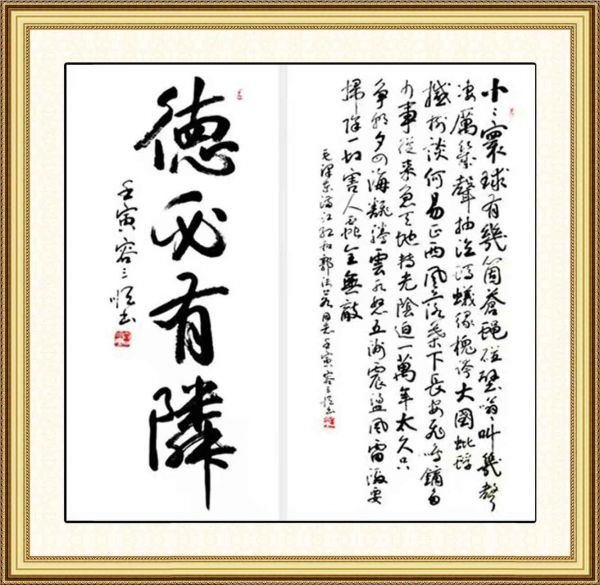 小〻寰球有幾箇蒼蠅碰壁嗡叫幾聲
凄厲幾聲抽泣螞蟻緣槐夸大國蚍蜉
撼樹談何易正西風落葉下長安飛鳴鏑多
少事從來急天地轉光陰迫一萬年太久只
爭朝夕四海翻騰雲水怒五洲震盪風雷激要
掃除一切害人虫全無敵
毛澤东滿江紅和郭沫若同志壬寅容三书
德必有隣
壬寅容三书